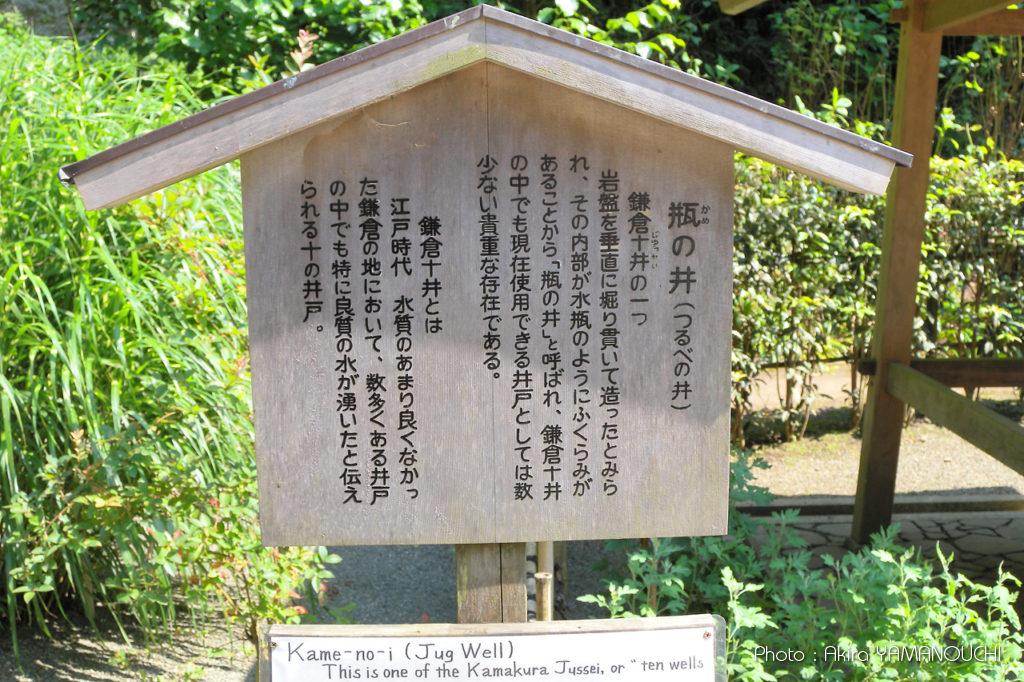 瓶の井（つるべの井）
かめ
鎌倉十井の一つ
じゅっせい
岩盤を垂直に堀り貫いて造ったとみら
れ、その内部が水瓶のようにふくらみが
あることから「瓶の井」と呼ばれ、鎌倉十井
の中でも現在使用できる井戸としては数
少ない貴重な存在である。
鎌倉十井とは
江戸時代　水質のあまり良くなかっ
た鎌倉の地において、数多くある井戸
の中でも特に良質の水が湧いたと伝え
られる十の井戸。
Kame-no-i (Jug Well)
This is one of the Kamakura Jussei, or "ten wells
Photo : Akira YAMANOUCHI